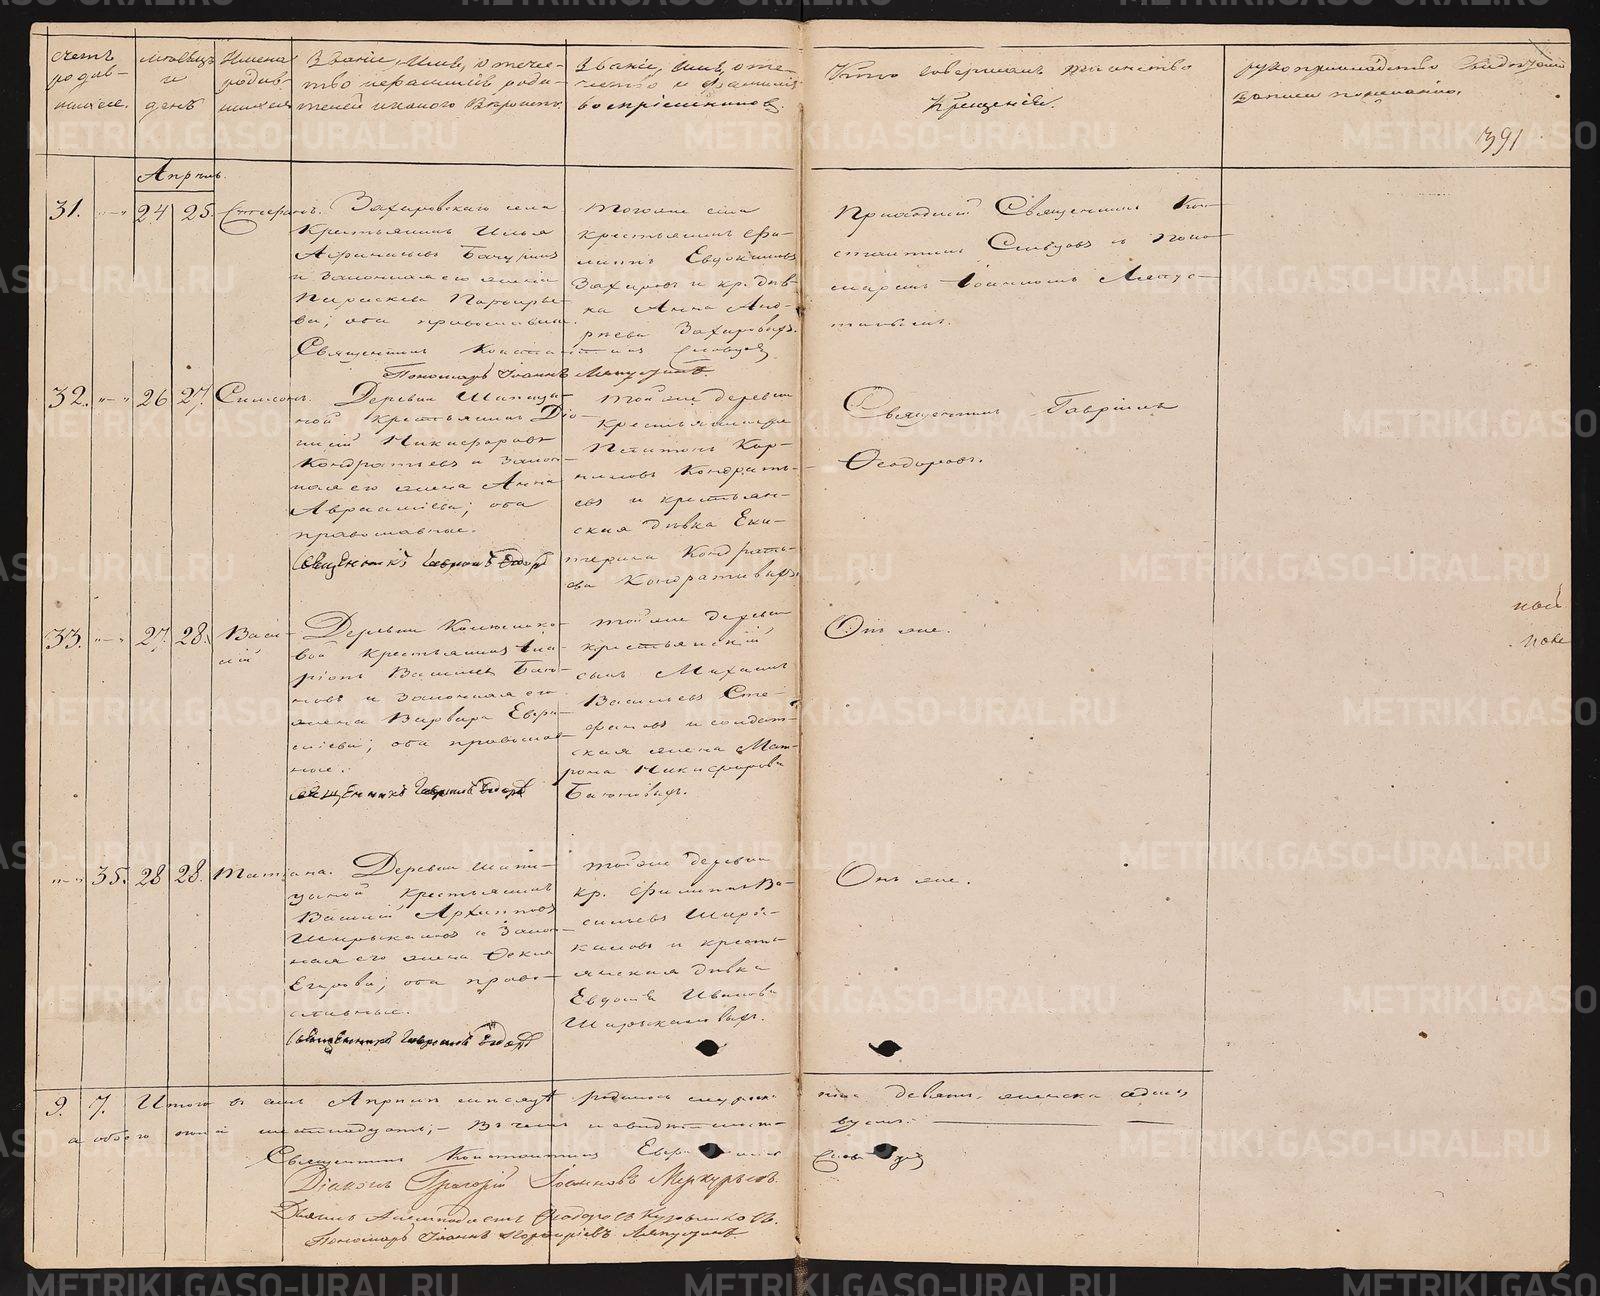 Счетъ родив-
шихся.
Мѣсяцъ
и
день
Имена
родив-
шихся
Званіе, Имя, отече-
ство и фамилія роди-
телей и какого Вѣроисп.
Званіе, Имя, оте-
чество и фамилія
воспріемниковъ.
Кто совершалъ таинство
Крещенія.
рукоприкладство
записи по желанію.
391
Апрѣль.
31. 24 25. Стефанъ.
Захаровскаго села
Крестьянинъ Илья
и законная его жена
Параскева Порфирье-
ва; оба православные.
Священникъ Константинъ Словцовъ
Пономарь Іоаннъ Ляпустинъ.
Того же села
крестьянинъ Фи-
липпъ Евдокимовъ
Захаровъ и кр. дѣв-
ка Анна Анд-
реева Захаровыхъ.
Приходскій Священникъ Кон-
стантинъ Словцовъ и поно-
марь Іоаннъ Ляпус-
тинымъ.
32. 26 27. Симеонъ.
Деревни Шипицы-
ной крестьянинъ Діо-
нисій Никифоровъ
Кондратьевъ и закон-
ная его жена Анна
Авраамиева; оба
православные.
Священникъ Гавріилъ Ѳедоровъ
той же деревни
крестьянинъ
Платонъ Кор-
ниловъ Кондрать-
евъ и крестьян-
ская дѣвка Ека-
терина Кондрать-
ева Кондратьевыхъ.
Священникъ Гавріилъ
Ѳеодоровъ.
33. 27. 28. Васи-
лій
крестьянинъ Ила-
ріонъ Василіевъ
и законная его
жена Варвара
оба православ-
ные.
Священникъ Гавріилъ Ѳедоровъ
той же деревни
крестьянскій
сынъ Михаилъ
Васильевъ Сте-
фановъ и солдат-
ская жена Мат-
рона Никифорова
Онъ же.
ной
поне
35. 28 28. Татіана.
Деревни Шипи-
цыной крестьянинъ
Василій Архиповъ
Ширыкаловъ и закон-
ная его жена Ѳекла
Егорова; оба право-
славные.
Священникъ Гавріилъ Ѳедоровъ
той же деревни
кр. Филиппъ Ва-
сильевъ Ширы-
каловъ и кресть-
янская дѣвка
Евдокія Иванова
Ширыкаловыхъ.
Онъ же.
9. 7. Итого въ семъ Апрѣлѣ мѣсяцѣ родилось мужска
пола девять, женска седмь
а обоего пола шестнадцать; – Въ чемъ и свидѣтельст-
вуемъ:
Священникъ Константинъ Словцовъ
Діаконъ Григорій Іоанновъ Меркурьевъ.
Пономарь Іоаннъ Порфиріевъ Ляпустинъ
METRIKI.GASO-URAL.RU